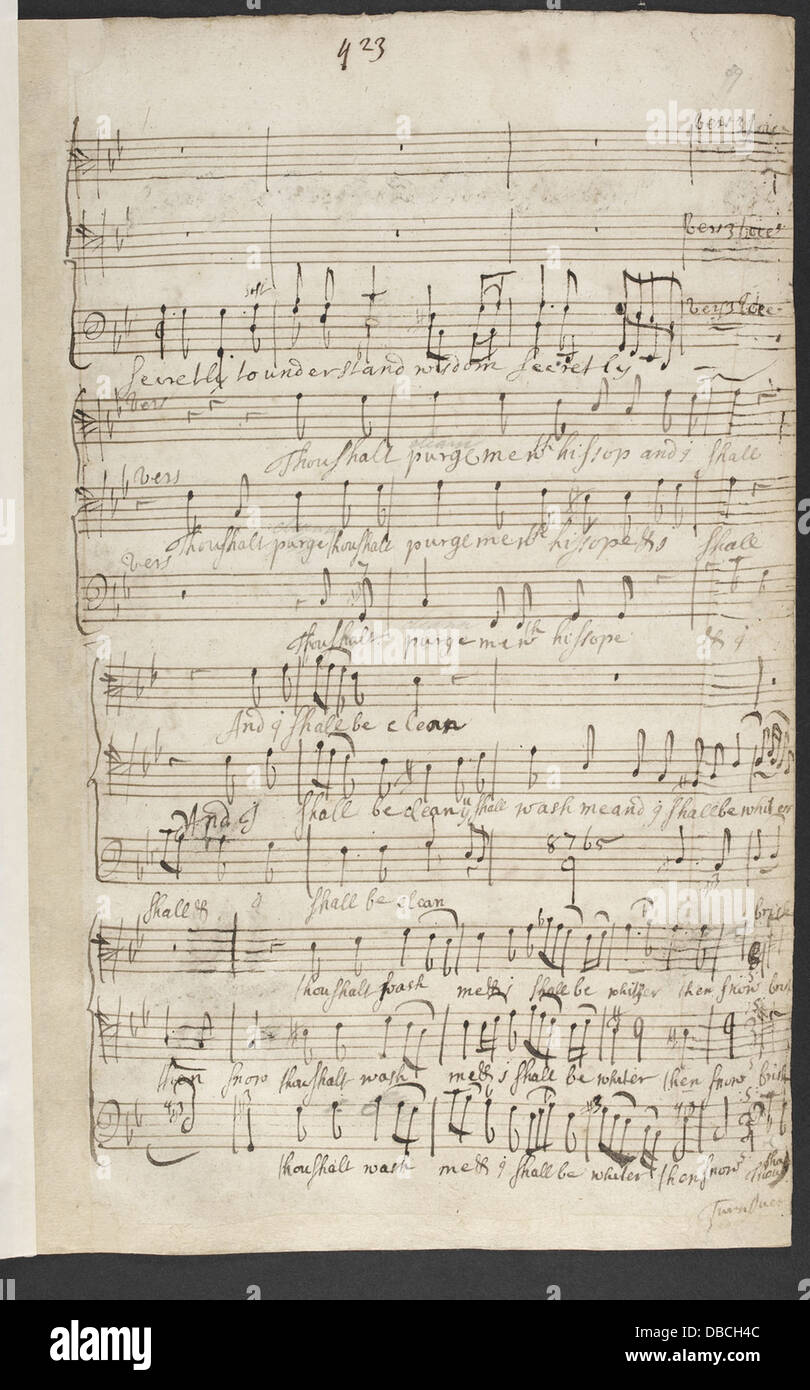 423
vers 3 voic
vers 3 voces
vers 3 voce
soft
secretly to understand wisdom secretly
vers
Thou shalt purge me wth hissop and j shall
vers
Thou shalt purge thou shalt purge me wth hissope & j shall
vers
Thou shalt purge me wth hissope & j
And j shall be clean
And j shall be clean shall wash me and j shall be whiter
8765
shall & j shall be clean
thou shalt wash me & j shall be whiter then snow
then snow thou shalt wash me & j shall be whiter then snow
thou shalt wash me & j shall be whiter then snow
Turn Over
alamy
Image ID: DBCH4C
www.alamy.com
alamy stock photo